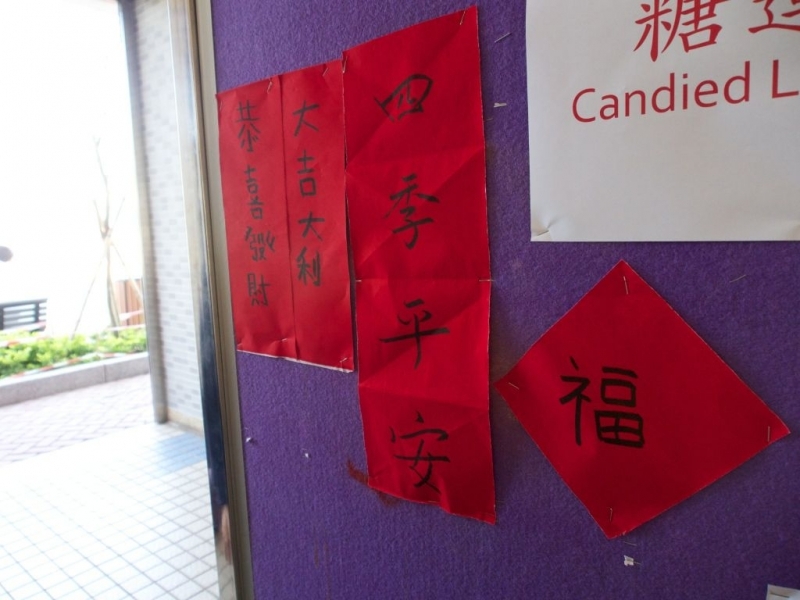 大吉大利
恭喜發財
四季平安
福
糖
Candied L